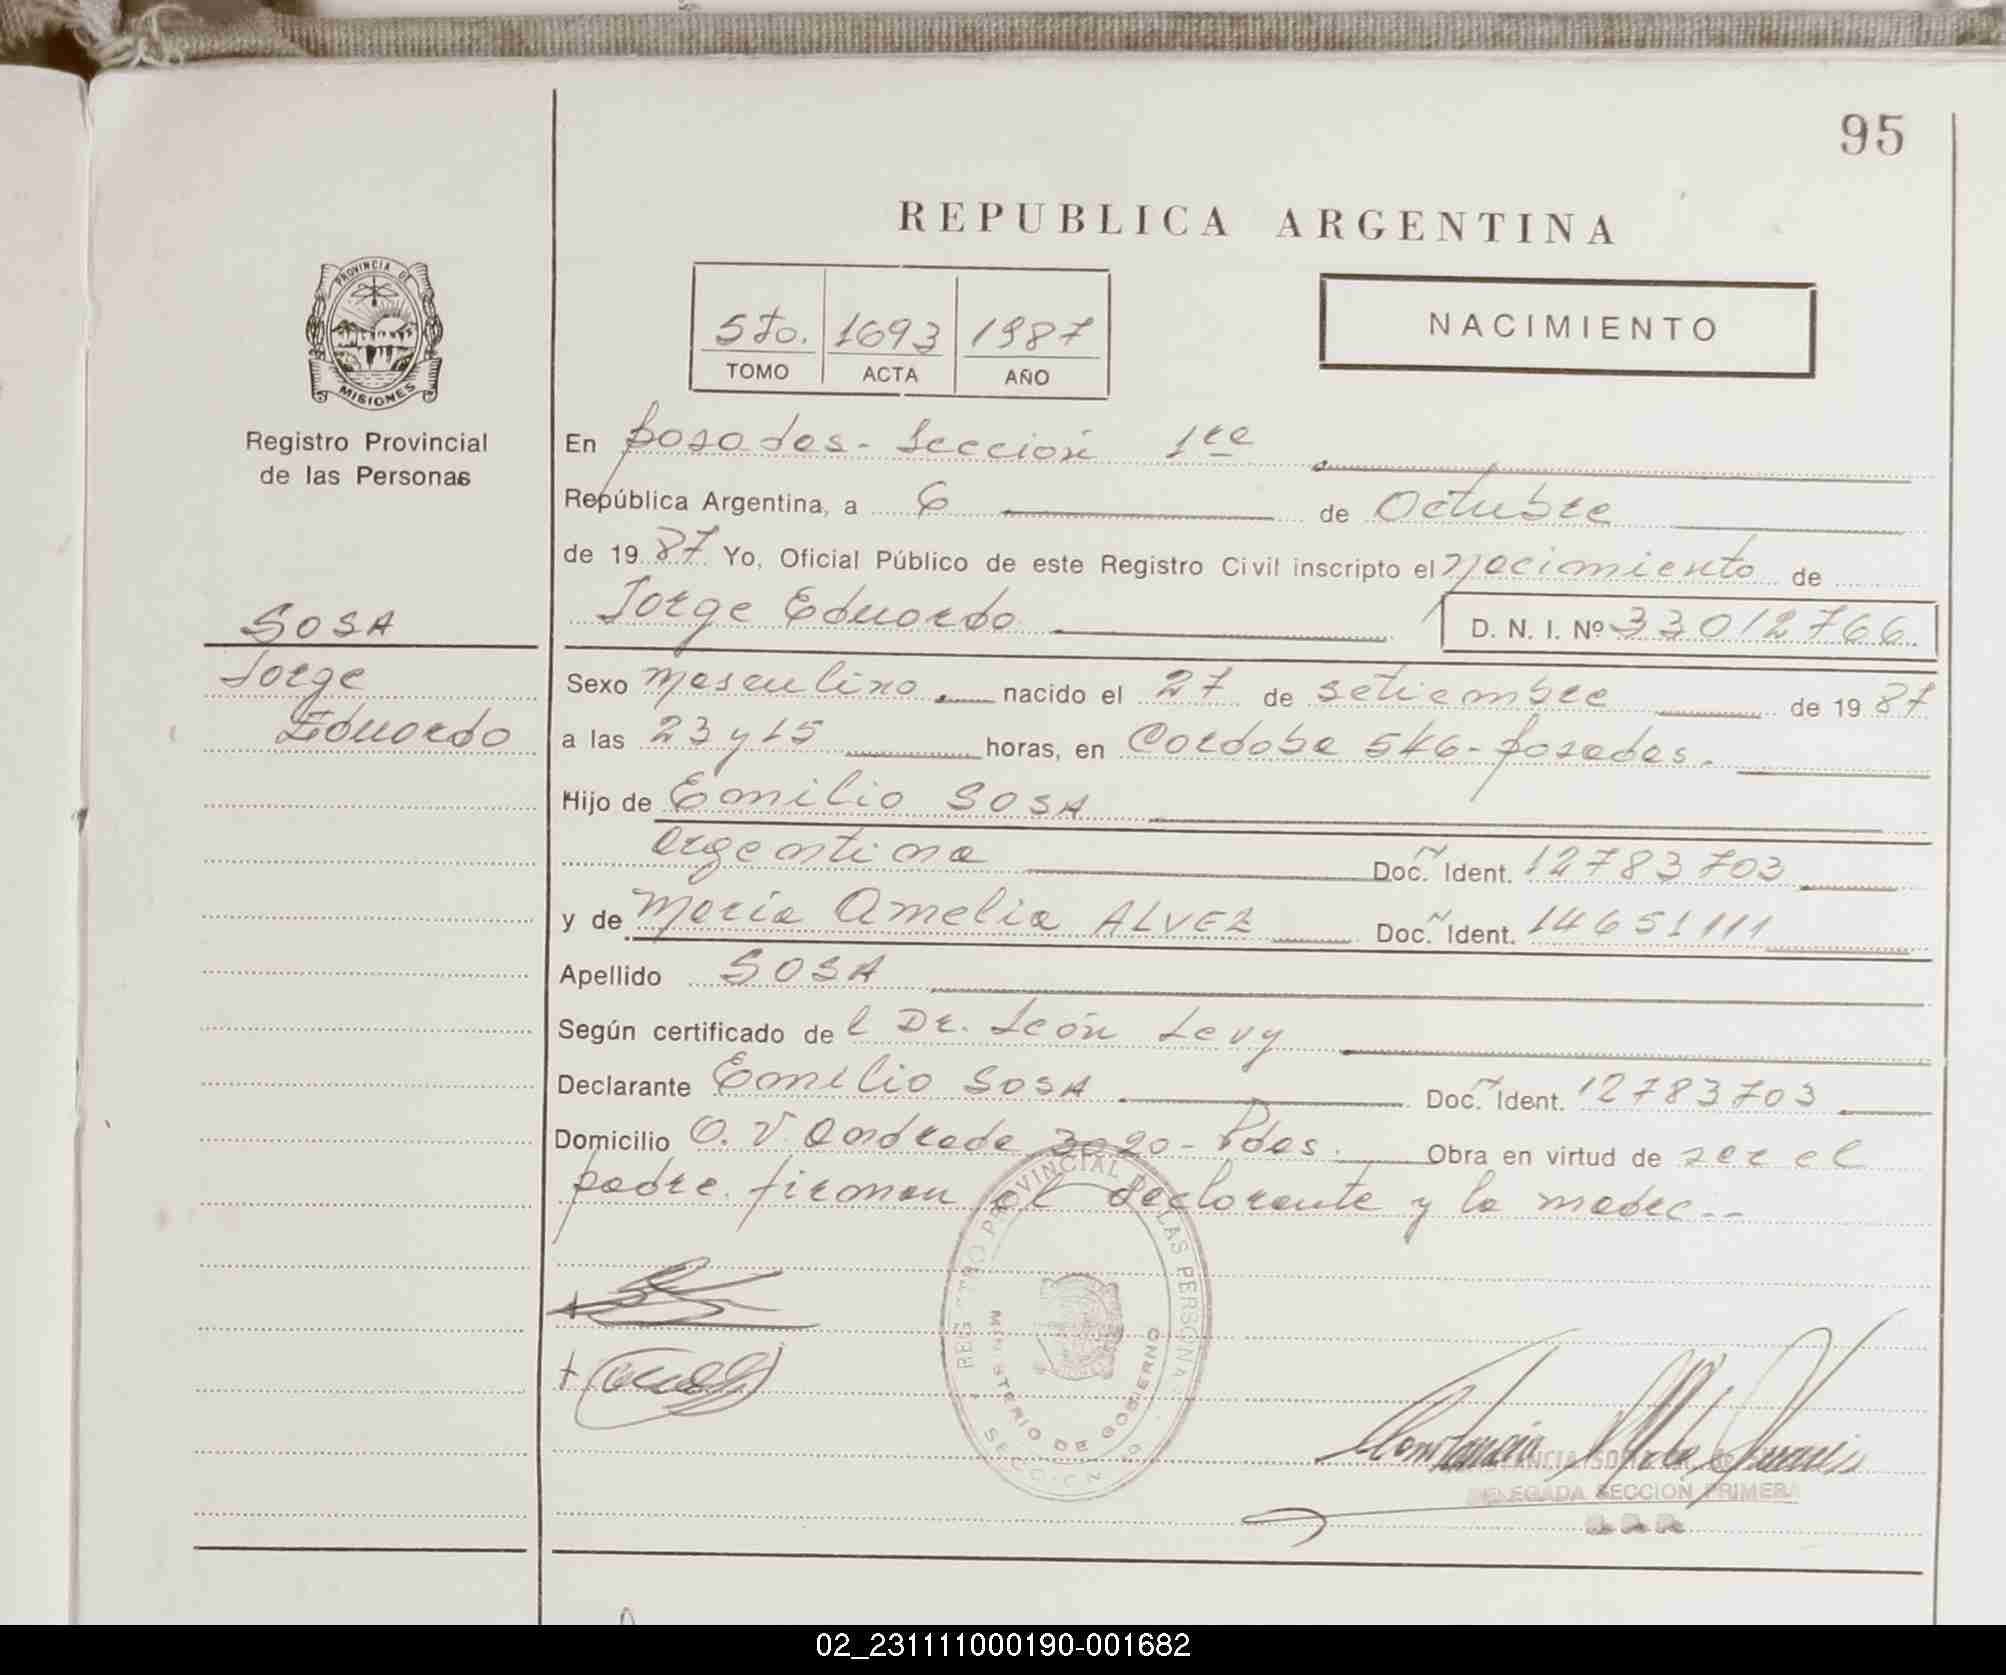 95
REPUBLICA ARGENTINA
PROVINCIA DE
MISIONES
Registro Provincial
de las Personas
5to. 1693 1987
TOMO ACTA AÑO
NACIMIENTO
En Posadas - Sección 1ra
República Argentina, a 6 de Octubre
de 1987 Yo, Oficial Público de este Registro Civil inscripto el Nacimiento de
Jorge Eduardo D. N. I. Nº 33012766
SOSA
Jorge
Eduardo
Sexo Masculino nacido el 27 de setiembre de 1987
a las 23 y 15 horas, en Cordoba 546 - Posadas.
Hijo de Emilio SOSA
argentina Doc. Ident. 12783703
y de María Amelia ALVEZ Doc. Ident. 14651111
Apellido SOSA
Según certificado del Dr. León Levy
Declarante Emilio SOSA Doc. Ident. 12783703
Domicilio O. V. Andrade 3020 - Pdas. Obra en virtud de ser el
padre. firman el declarante y la madre --
REGISTRO PROVINCIAL LAS PERSONAS
MINISTERIO DE GOBIERNO
DELEGADA SECCION PRIMERA
02_231111000190-001682